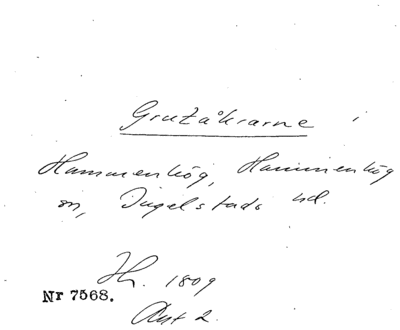 Grutåkrarne i
Hammenhög, Hammenhög
sn, Ingelstads hd.
Jh. 1809
Nr 7568.
Akt 2.